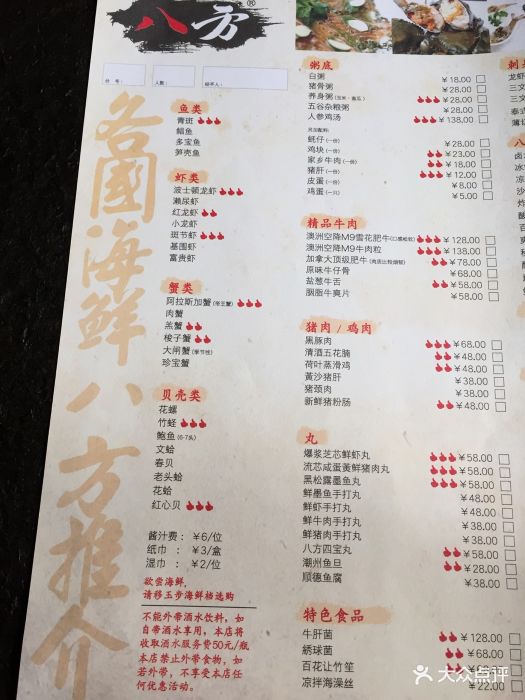 八方®
台 号：
人数：
经手人：
各國海鲜八方推介
鱼类
青斑
鲳鱼
多宝鱼
笋壳鱼
虾类
波士顿龙虾
濑尿虾
红龙虾
小龙虾
斑节虾
基围虾
富贵虾
蟹类
阿拉斯加蟹(帝王蟹)
肉蟹
羔蟹
梭子蟹
大闸蟹(季节性)
珍宝蟹
贝壳类
花螺
竹蛏
鲍鱼(6-7头)
文蛤
春贝
老头蛤
花蛤
红心贝
酱汁费： ￥6/位
纸巾 ： ￥3/盒
湿巾 ： ￥2/位
欲尝海鲜,
请移玉步海鲜档选购
不能外带酒水饮料，如
自带酒水享用，本店将
收取酒水服务费50元/瓶
本店禁止外带食物，如
若外带，不享受本店任
何优惠活动。
粥底
白粥 ￥18.00
猪骨粥 ￥28.00
养身粥 ￥28.00
五谷杂粮粥 ￥28.00
人参鸡汤 ￥138.00
另加配料:
蚝仔(一份) ￥28.00
鸡块(一份) ￥23.00
家乡牛肉(一份) ￥18.00
猪肝(一份) ￥12.00
皮蛋(一份) ￥8.00
鸡蛋(一只) ￥5.00
精品牛肉
澳洲空降M9雪花肥牛(口感松软) ￥128.00
澳洲空降M9牛肉粒 ￥138.00
加拿大顶级肥牛 ￥78.00
原味牛仔骨 ￥68.00
盐葱牛舌 ￥58.00
胭脂牛爽片 ￥58.00
猪肉 / 鸡肉
黑豚肉 ￥68.00
清酒五花腩 ￥48.00
荷叶蒸滑鸡 ￥48.00
黄沙猪肝 ￥48.00
猪颈肉 ￥48.00
新鲜猪粉肠 ￥48.00
丸
爆浆芝芯鲜虾丸 ￥58.00
流芯咸蛋黄鲜猪肉丸 ￥58.00
黑松露墨鱼丸 ￥58.00
鲜墨鱼手打丸 ￥48.00
鲜虾手打丸 ￥48.00
鲜牛肉手打丸 ￥38.00
鲜猪肉手打丸 ￥38.00
八方四宝丸 ￥58.00
潮州鱼旦 ￥28.00
顺德鱼腐 ￥38.00
特色食品
牛肝菌 ￥128.00
绣球菌 ￥68.00
百花让竹笙
凉拌海澡丝 ￥22.00
大众点评